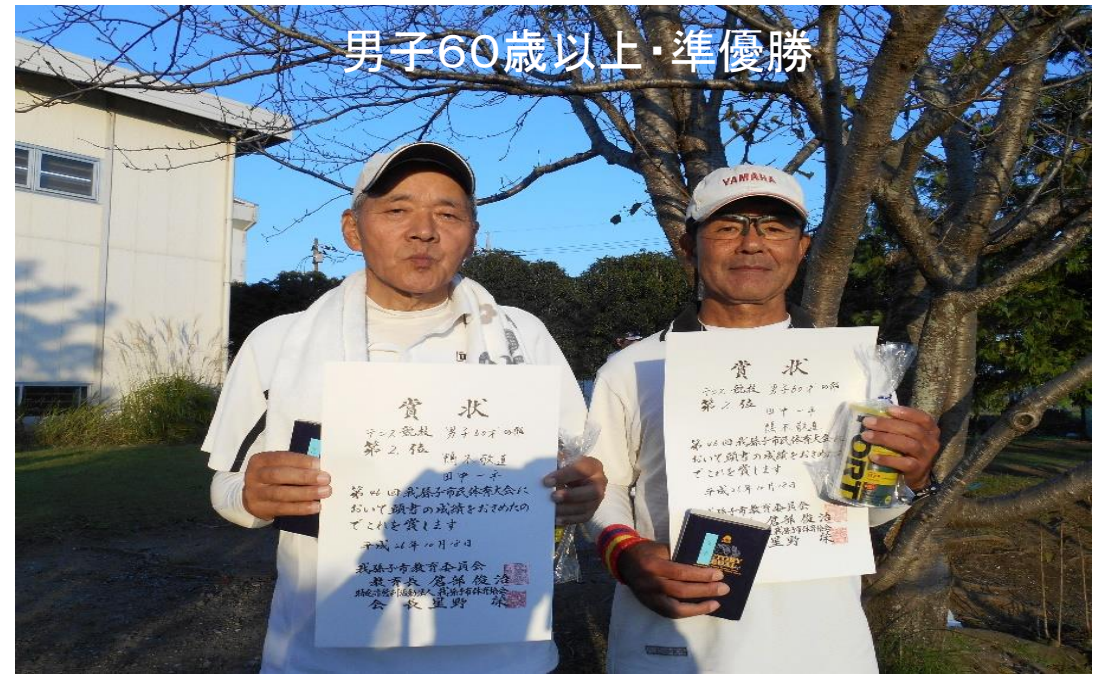 男子60歳以上・準優勝
YAMAHA
賞状
テニス競技 男子60才の部
第2位
鴨木敬道
第46回我孫子市民体育大会に
おいて頭書の成績をおさめたの
でこれを賞します
平成26年10月18日
我孫子市教育委員会
教育長 倉部俊治
特定非営利活動法人 我孫子市体育協会
会長 星野
賞状
テニス競技 男子60才の部
第2位
鴨木敬道
第46回我孫子市民体育大会に
おいて頭書の成績をおさめたの
でこれを賞します
平成26年10月18日
我孫子市教育委員会
倉部俊治
我孫子市体育協会
星野